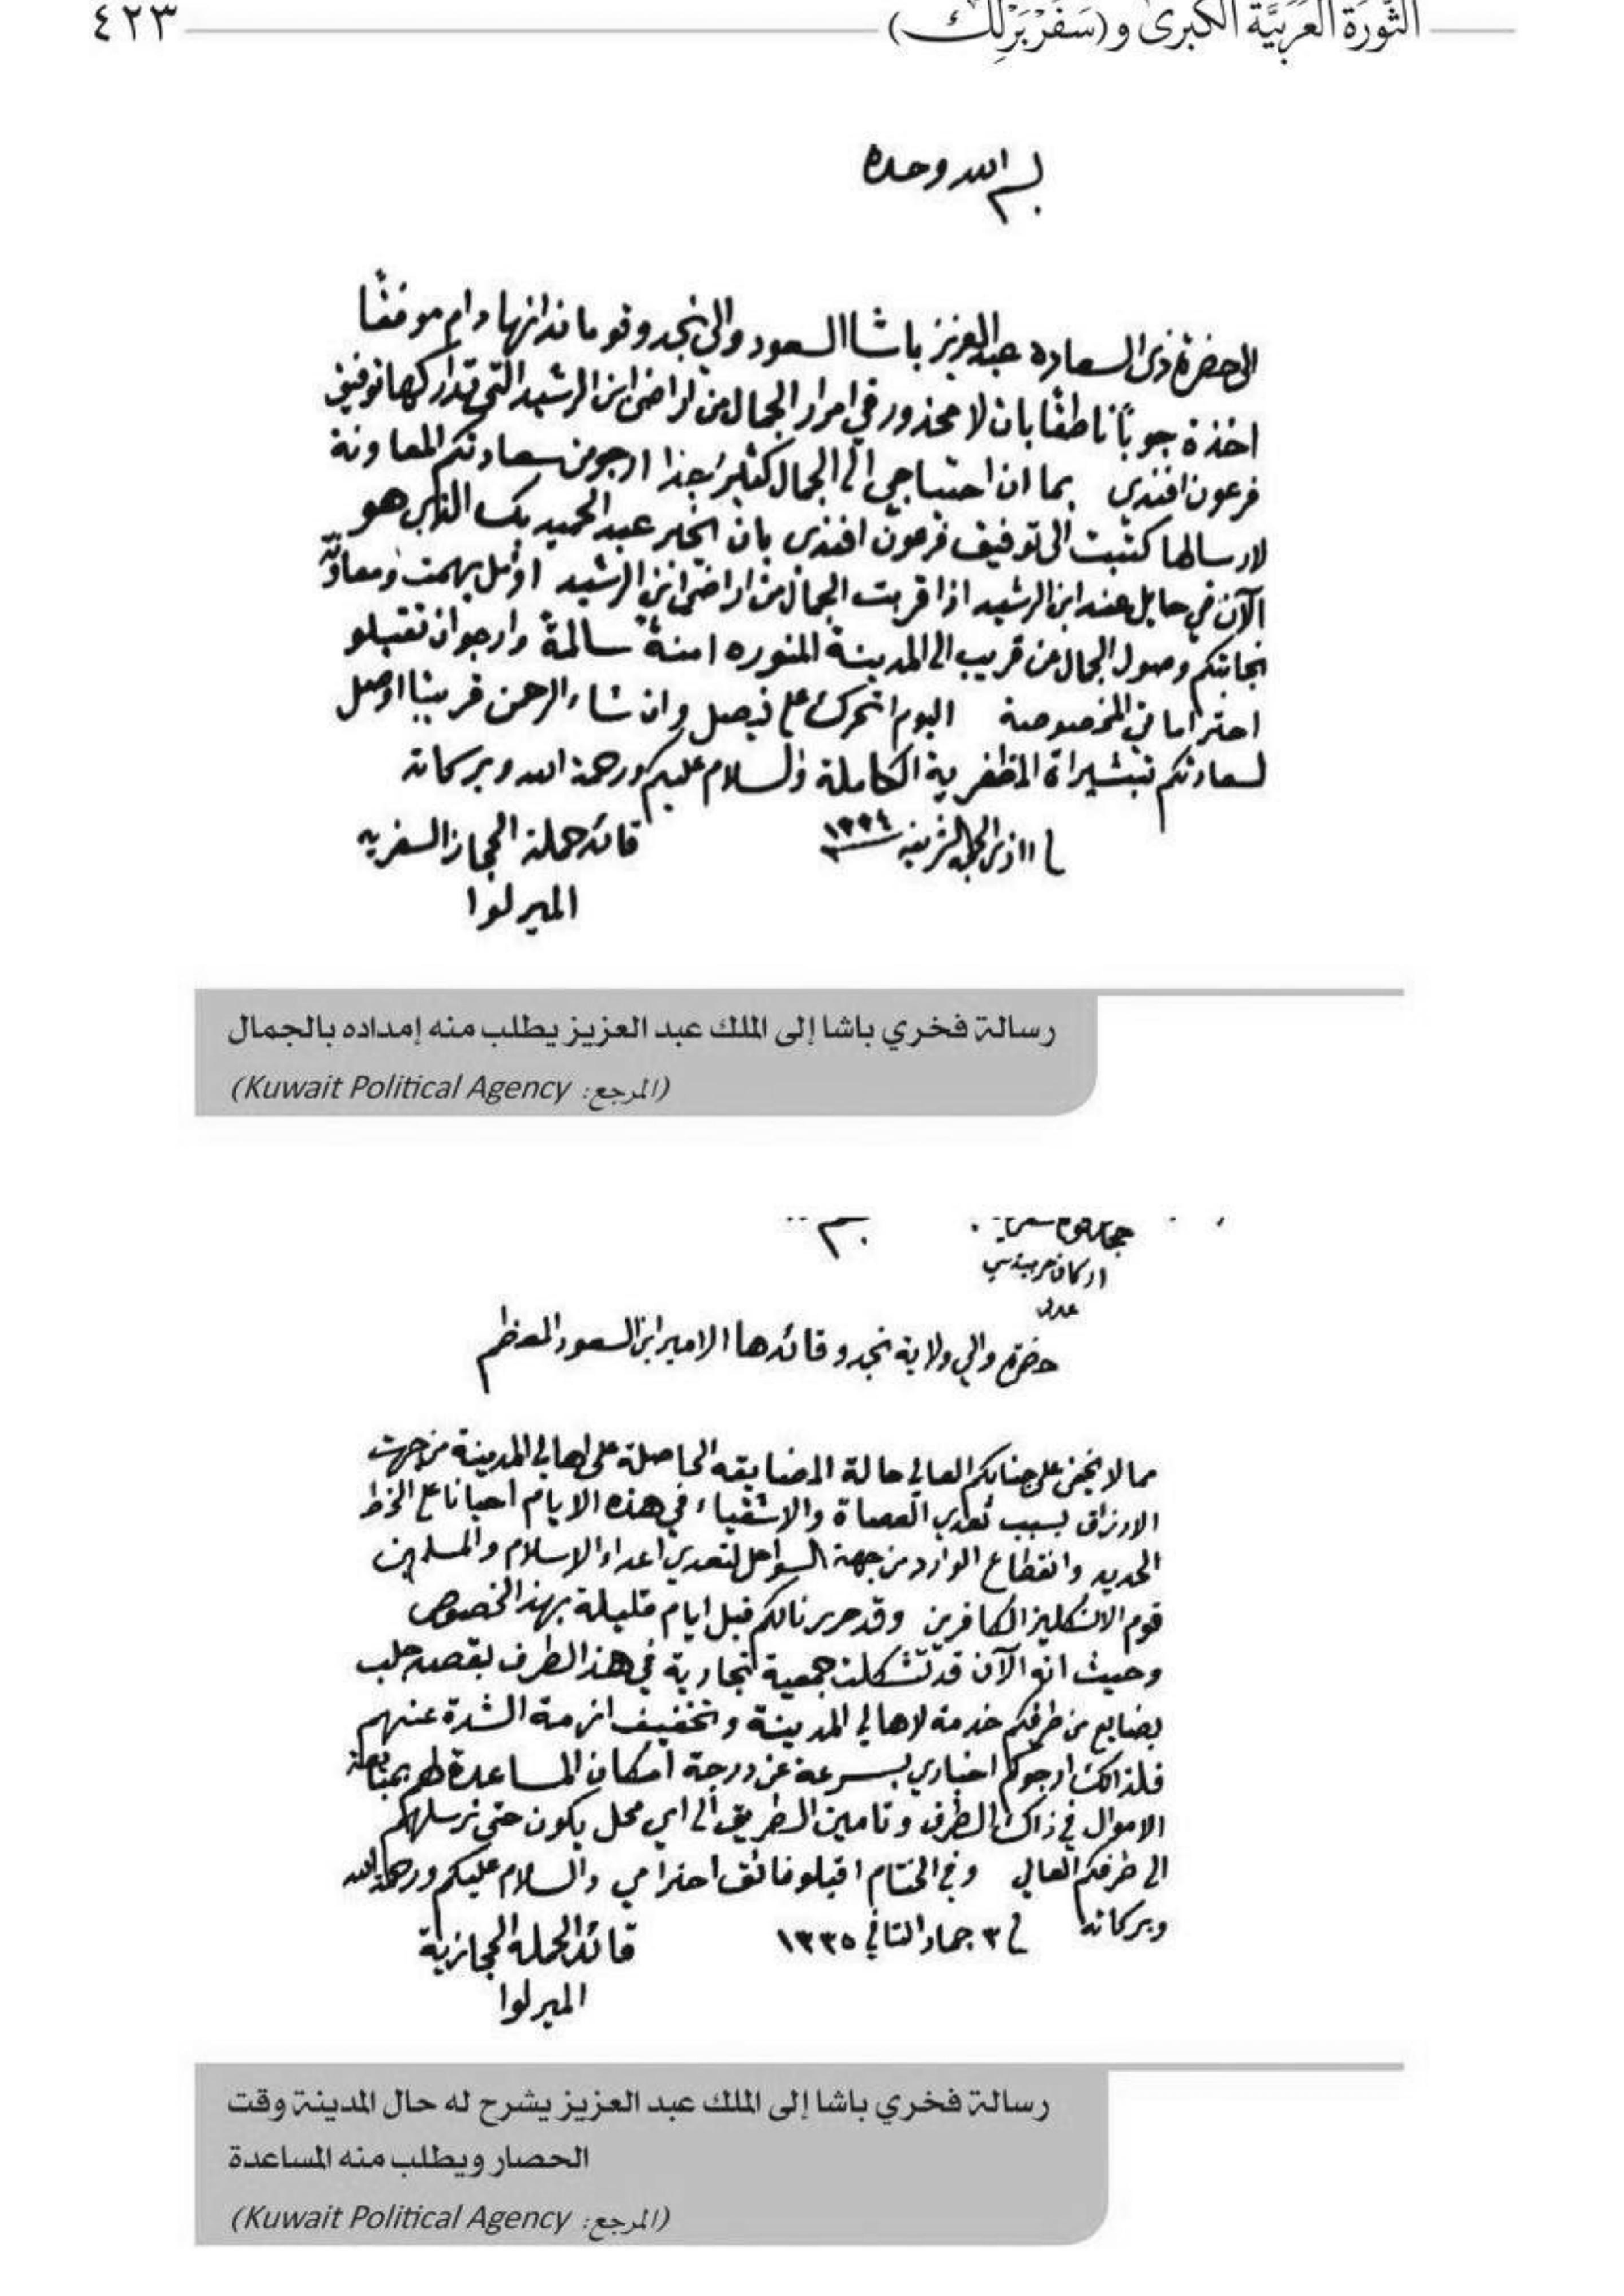 الثَّورَة العَرَبيَّة الكبرى و(سَفَرْبَرْلِك) ٤٢٣
بسم الله وحده
الى حضرة ذى السعاده عبدالعزيز باشا السعود والي نجد وقوماندانها دام موفقا
اخذة جوباً ناطقا بان لا محذور في امرار الجمال من اراضى ابن الرشيد التى تداركها توفيق
فرعون افندي بما ان احتياجي الى الجمال كثير جذا ارجو من سعادتكم المعاونة
لارسالها كتبت الى توفيق فرعون افندى بان يخبر عبد الحميد بك الذى هو
الآن في حايل عند ابن الرشيد اذا قربت الجمال من اراضى ابن الرشيد اؤمل بهمت ومعاونة
نجابتكم وصول الجمال من قريب الى المدينة المنوره امنة سالمة وارجو ان تقبلو
احتراماتي المخصوصة اليوم اتحرك على فيصل وان شاء الرحمن قريبا اوصل
لسعادتكم تبشيراة المظفرية الكاملة والسلام عليكم ورحمة الله وبركاته
١١ ذى الحجة الشريفه ١٣٣٤ قائد حملة الحجاز السفريه
الميرلوا
رسالة فخري باشا إلى الملك عبد العزيز يطلب منه إمداده بالجمال
(المرجع: Kuwait Political Agency)
اركان حربيه سي
عدد
حضرة والي ولاية نجد وقائدها الامير ابن السعود المعظم
مما لا يخفى على جنابكم العالي حالة المضايقه الحاصلة على اهالي المدينة من جهت
الارزاق بسبب تعدي العصاة والاشقياء في هذه الايام احيانا على الخط
الحديد وانقطاع الوارد من جهة السواحل لتعدي اعداء الاسلام والمسلمين
قوم الانكليز الكافرين وقد حررنا لكم قبل ايام قليلة بهذا الخصوص
وحيث انه الآن قد تشكلت جمعية تجارية في هذا الطرف بقصد جلب
بضايع من طرفكم خدمة لاهالي المدينة وتخفيف ازمة الشدة عنهم
فلذالك ارجوكم اخباري بسرعة عن درجة امكان المساعدة لهم بمبايعة
الاموال في ذاك الطرف وتامين الطريق الى اي محل يكون حتى نرسلهم
الى طرفكم العالي وفي الختام اقبلو فائق احترامي والسلام عليكم ورحمة الله
وبركاته في ٣ جماد الثاني ١٣٣٥ قائد الحملة الحجازية
الميرلوا
رسالة فخري باشا إلى الملك عبد العزيز يشرح له حال المدينة وقت
الحصار ويطلب منه المساعدة
(المرجع: Kuwait Political Agency)